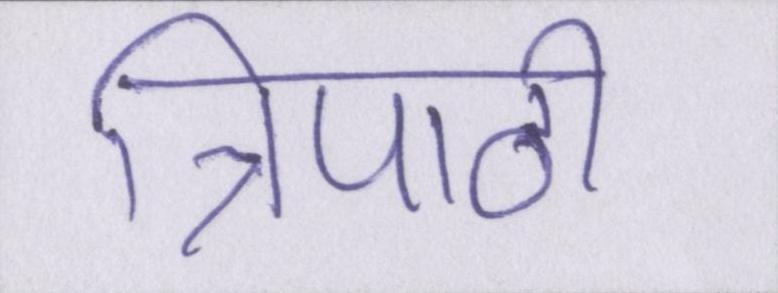 त्रिपाठी